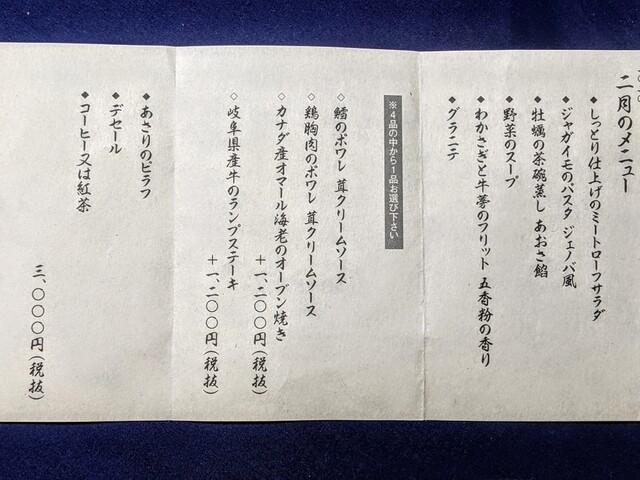 二月のメニュー
◆しっとり仕上げのミートローフサラダ
◆ジャガイモのパスタ ジェノバ風
◆牡蠣の茶碗蒸し あおさ餡
◆野菜のスープ
◆わかさぎと牛蒡のフリット 五香粉の香り
◆グラニテ
※4品の中から1品お選び下さい
◇鱈のポワレ 茸クリームソース
◇鶏胸肉のポワレ 茸クリームソース
◇カナダ産オマール海老のオーブン焼き
+一、二〇〇円(税抜)
◇岐阜県産牛のランプステーキ
+一、二〇〇円(税抜)
◆あさりのピラフ
◆デセール
◆コーヒー又は紅茶
三、〇〇〇円(税抜)